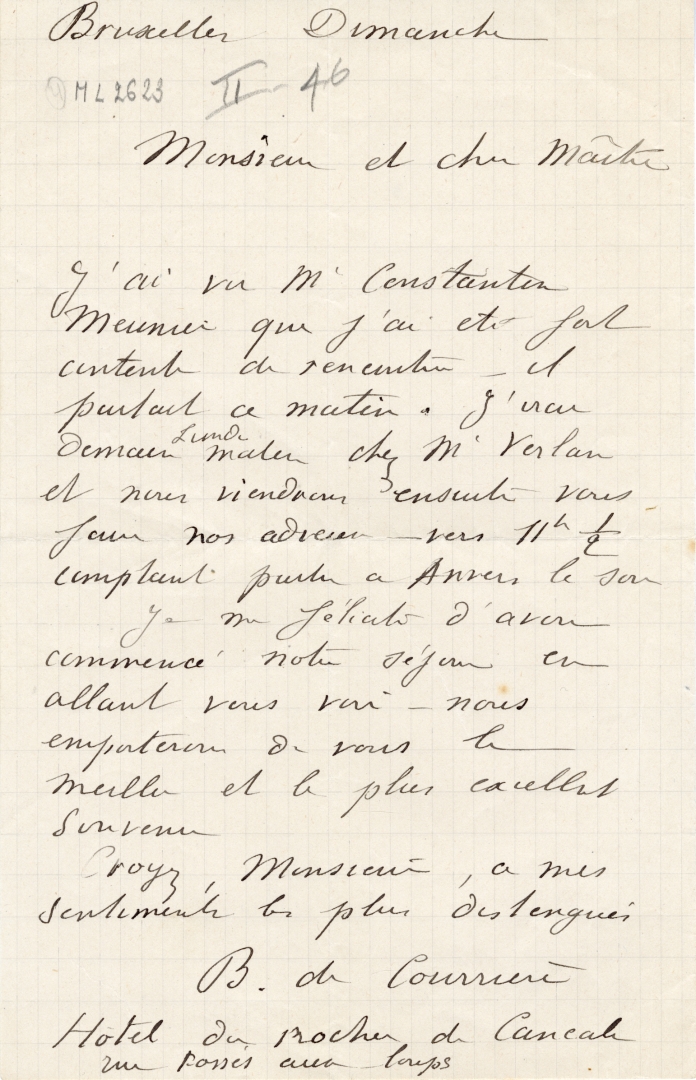 Bruxelles Dimanche
ML 2623 II - 46
Monsieur et cher Maître
J'ai vu Mr Constantin
Meunier que j'ai été fort
contente de rencontrer - il
partait ce matin. J'irai
demain Lundi matin chez Mr Verlan
et nous viendrons ensuite vous
faire nos adieux - vers 11h 1/2
comptant partir a Anvers le soir
Je me félicite d'avoir
commencé notre séjour en
allant vous voir - nous
emporterons de vous le
meilleur et le plus excellent
souvenir
Croyez, Monsieur, a mes
sentiments les plus distingués
B. de Courrière
Hôtel du Rocher de Cancale
rue Fossés aux loups